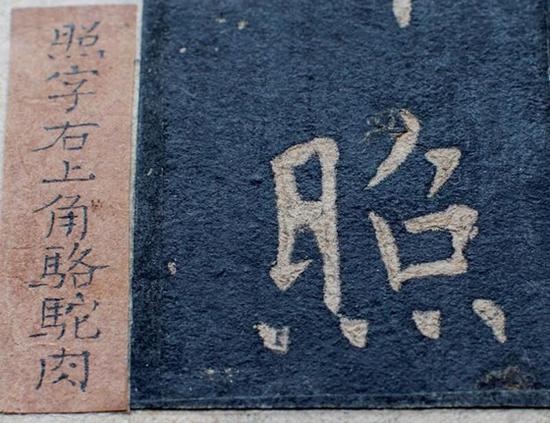 照字右上角駱駝肉
照